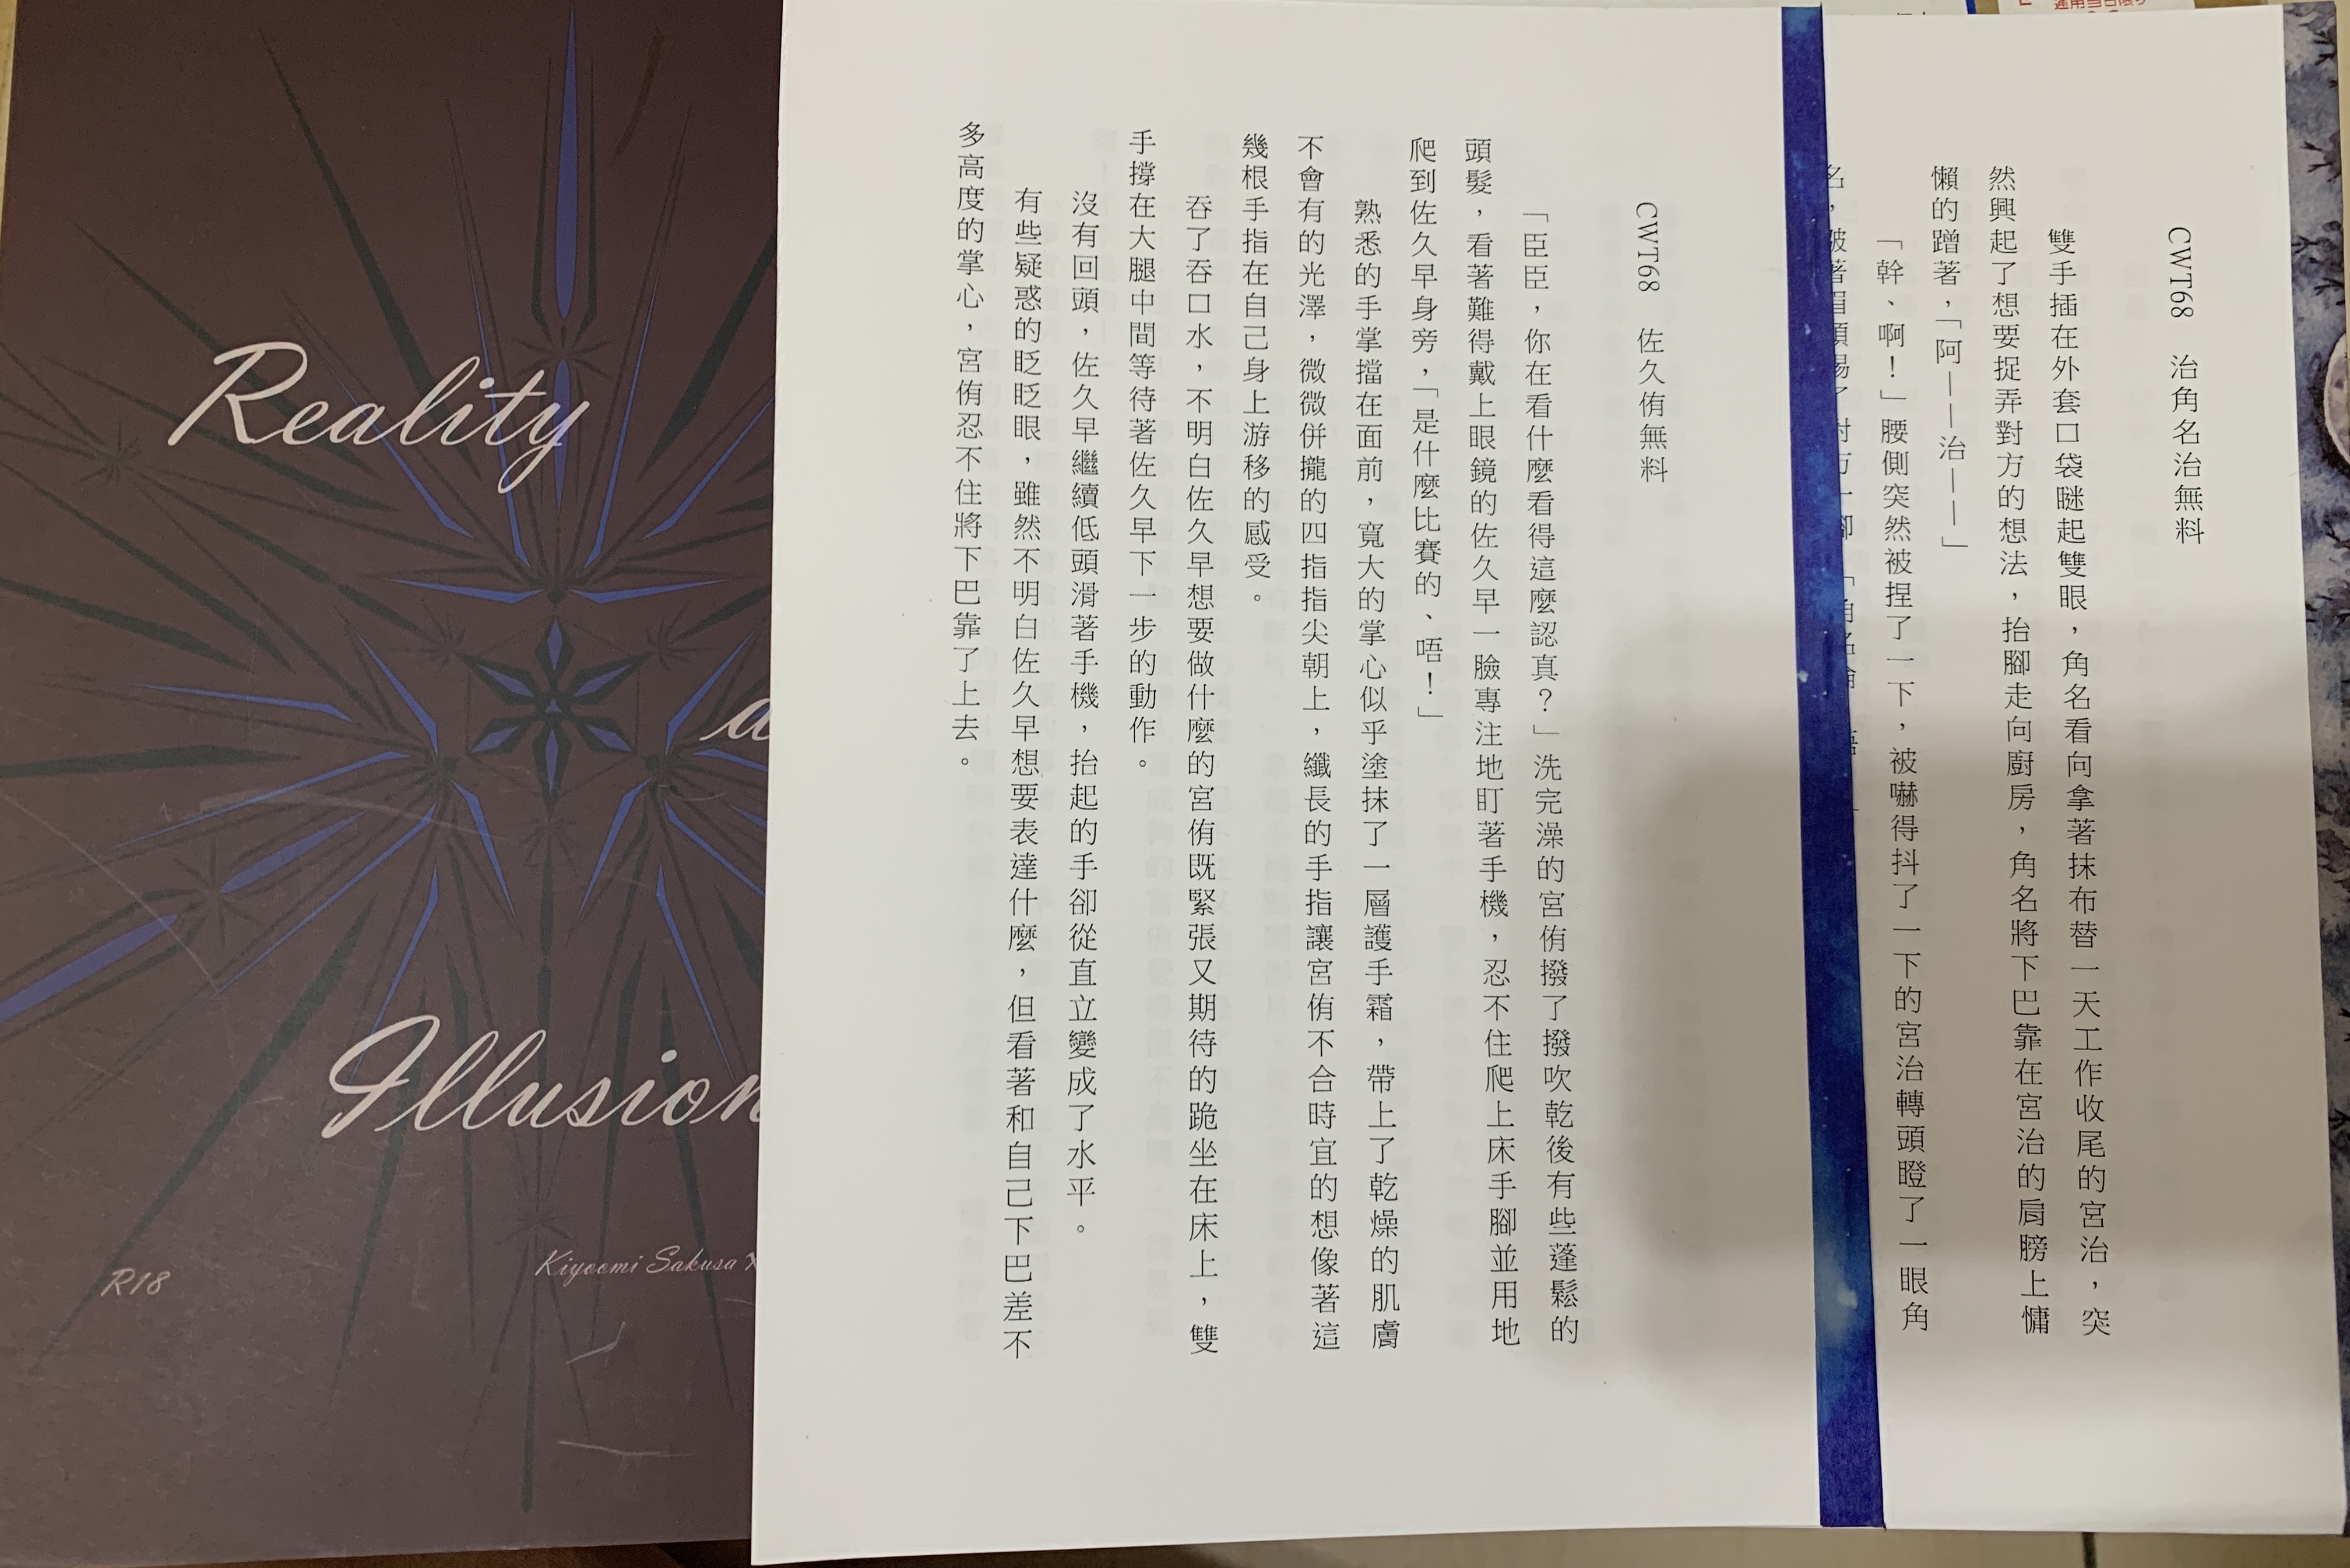 Reality
a
Illusion
R18
Kiyoomi Sakusa X
CWT68　佐久侑無料
「臣臣，你在看什麼看得這麼認真？」洗完澡的宮侑撥了撥吹乾後有些蓬鬆的
頭髮，看著難得戴上眼鏡的佐久早一臉專注地盯著手機，忍不住爬上床手腳並用地
爬到佐久早身旁，「是什麼比賽的、唔！」
熟悉的手掌擋在面前，寬大的掌心似乎塗抹了一層護手霜，帶上了乾燥的肌膚
不會有的光澤，微微併攏的四指指尖朝上，纖長的手指讓宮侑不合時宜的想像著這
幾根手指在自己身上游移的感受。
吞了吞口水，不明白佐久早想要做什麼的宮侑既緊張又期待的跪坐在床上，雙
手撐在大腿中間等待著佐久早下一步的動作。
沒有回頭，佐久早繼續低頭滑著手機，抬起的手卻從直立變成了水平。
有些疑惑的眨眨眼，雖然不明白佐久早想要表達什麼，但看著和自己下巴差不
多高度的掌心，宮侑忍不住將下巴靠了上去。
CWT68　治角名治無料
雙手插在外套口袋瞇起雙眼，角名看向拿著抹布替一天工作收尾的宮治，突
然興起了想要捉弄對方的想法，抬腳走向廚房，角名將下巴靠在宮治的肩膀上慵
懶的蹭著，「阿——治——」
「幹、啊！」腰側突然被捏了一下，被嚇得抖了一下的宮治轉頭瞪了一眼角
名，